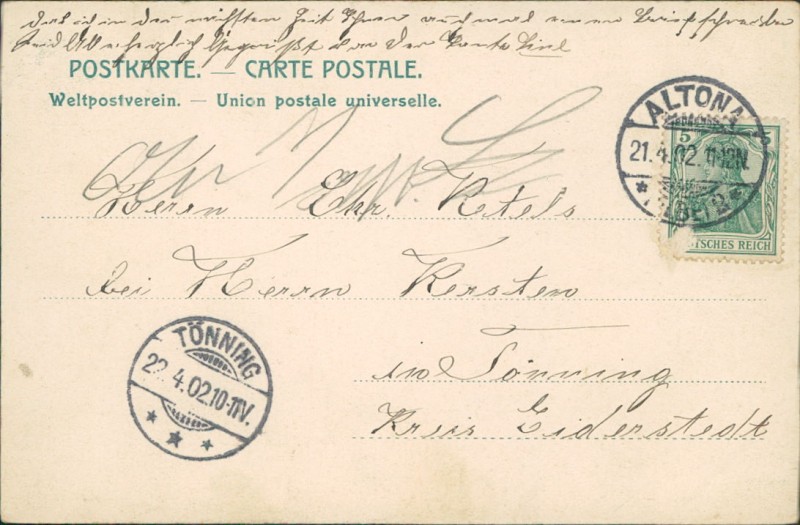 das ich in der nächsten Zeit Ihnen auch mal einen Brief schreiben
Seid Alle herzlich Gegrüßt von der Tante
POSTKARTE. — CARTE POSTALE.
Weltpostverein. — Union postale universelle.
ALTONA
21.4.02.11-12N.
(ELBE) 2
5
DEUTSCHES REICH
Herrn Chr.
bei Herrn Kersten
in Tönning
Kreis Eiderstedt
TÖNNING
22.4.02.10-11V.